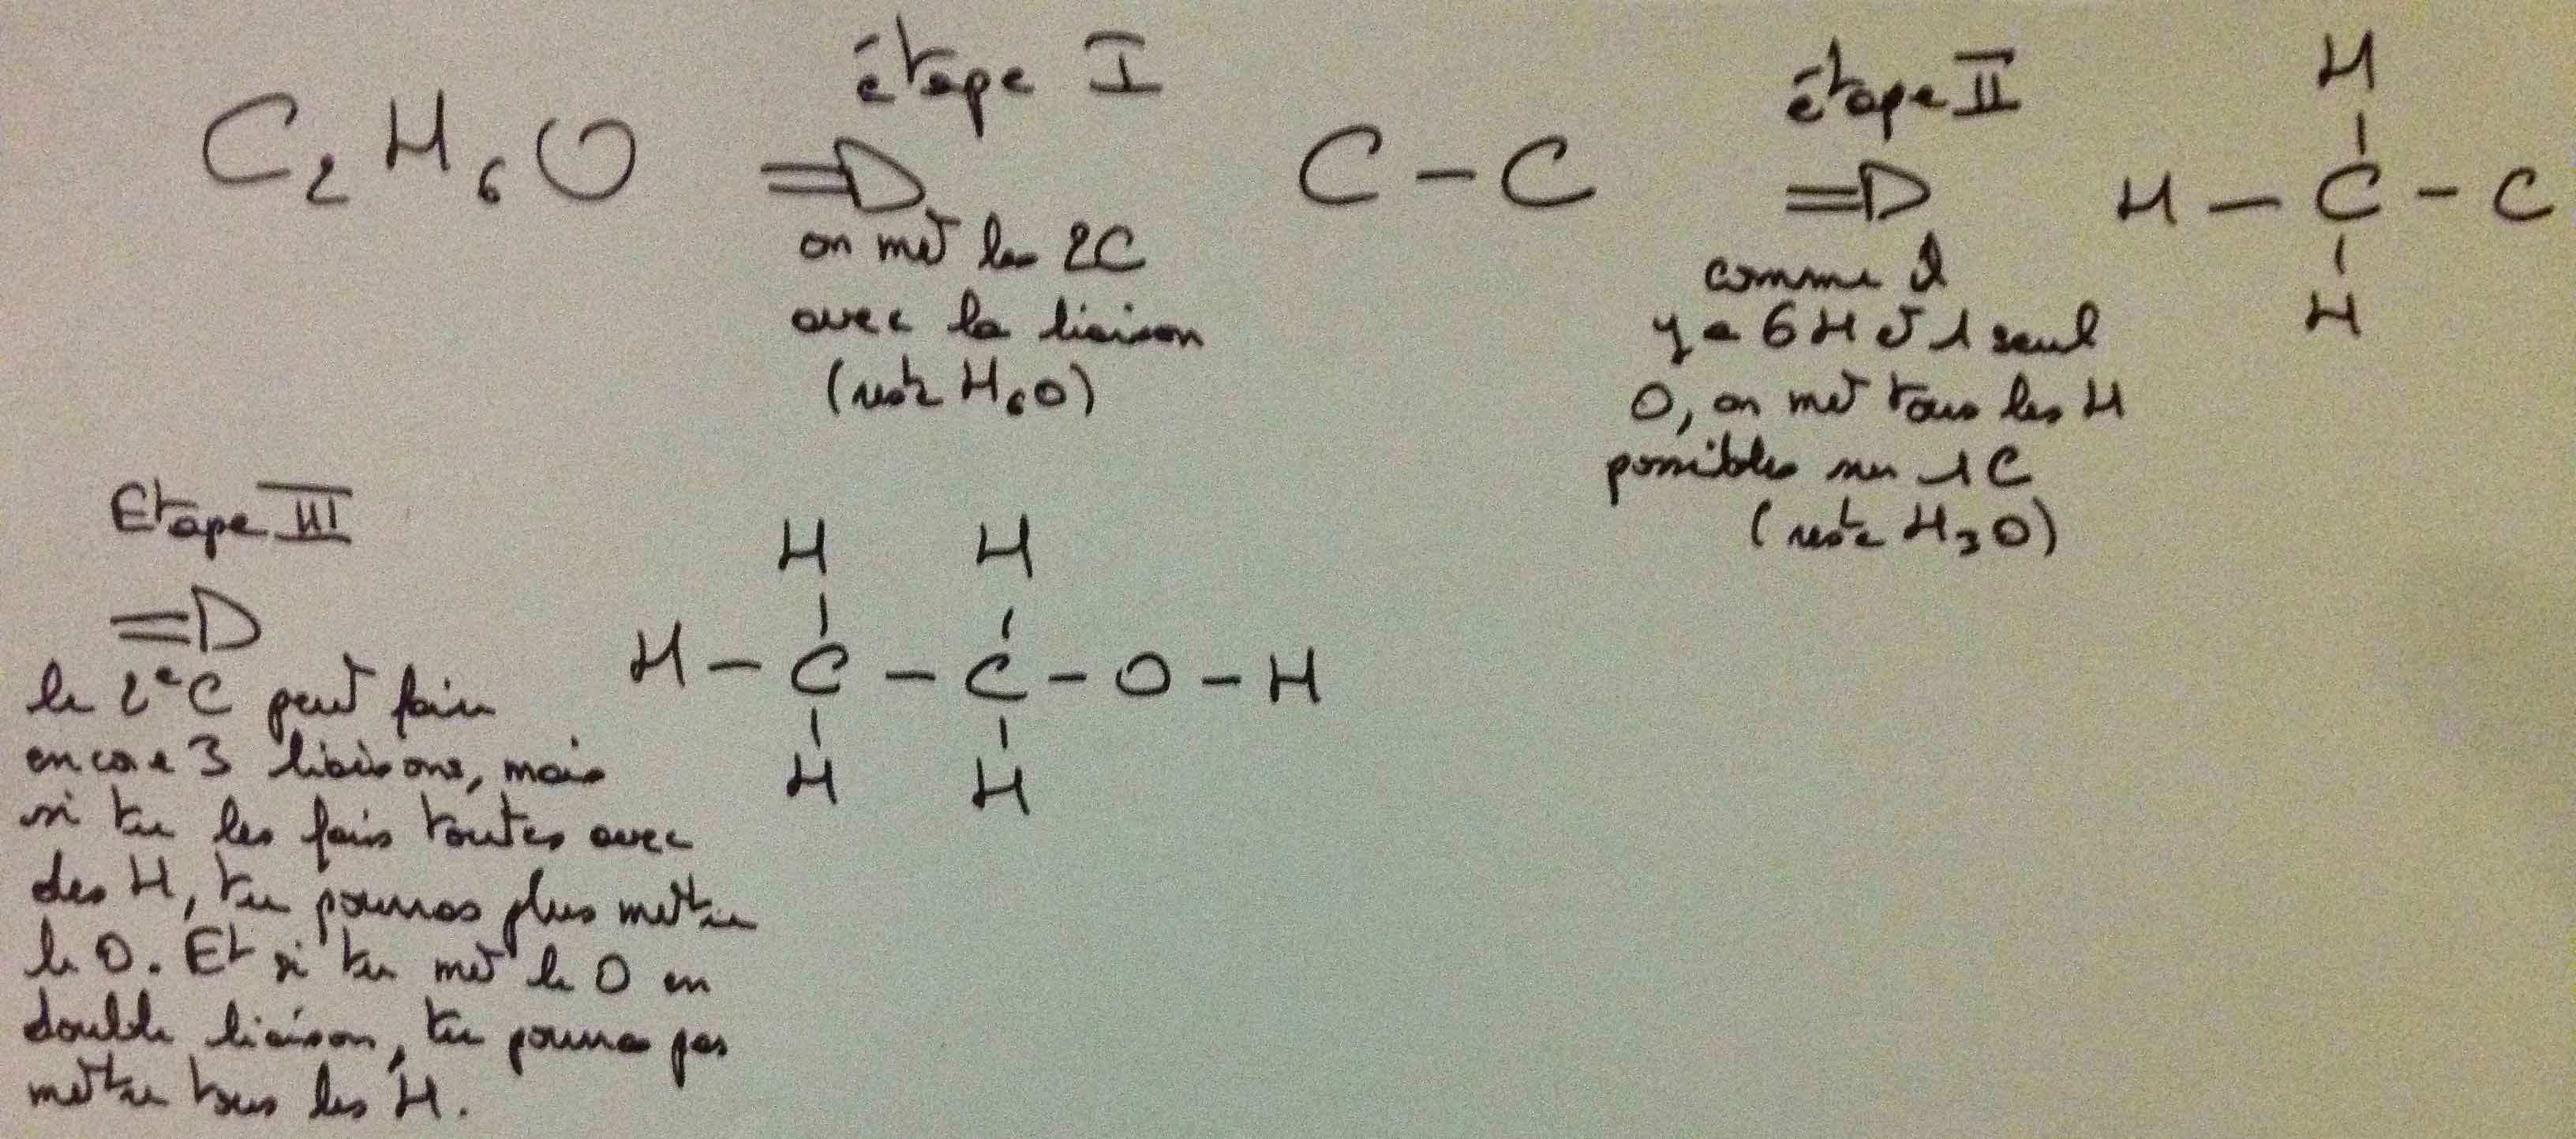 C₂H₆O
étape I
=D
on met les 2C
avec la liaison
(reste H₆O)
C - C
étape II
=D
comme il
y a 6 H et 1 seul
O, on met tous les H
possibles sur 1 C
(reste H₃O)
H
H - C - C
H
Etape III
=D
le 2e C peut faire
encore 3 liaisons, mais
si tu les fais toutes avec
des H, tu pourras plus mettre
le O. Et si tu met le O en
double liaison, tu pourra pas
mettre tous les H.
H H
H - C - C - O - H
H H